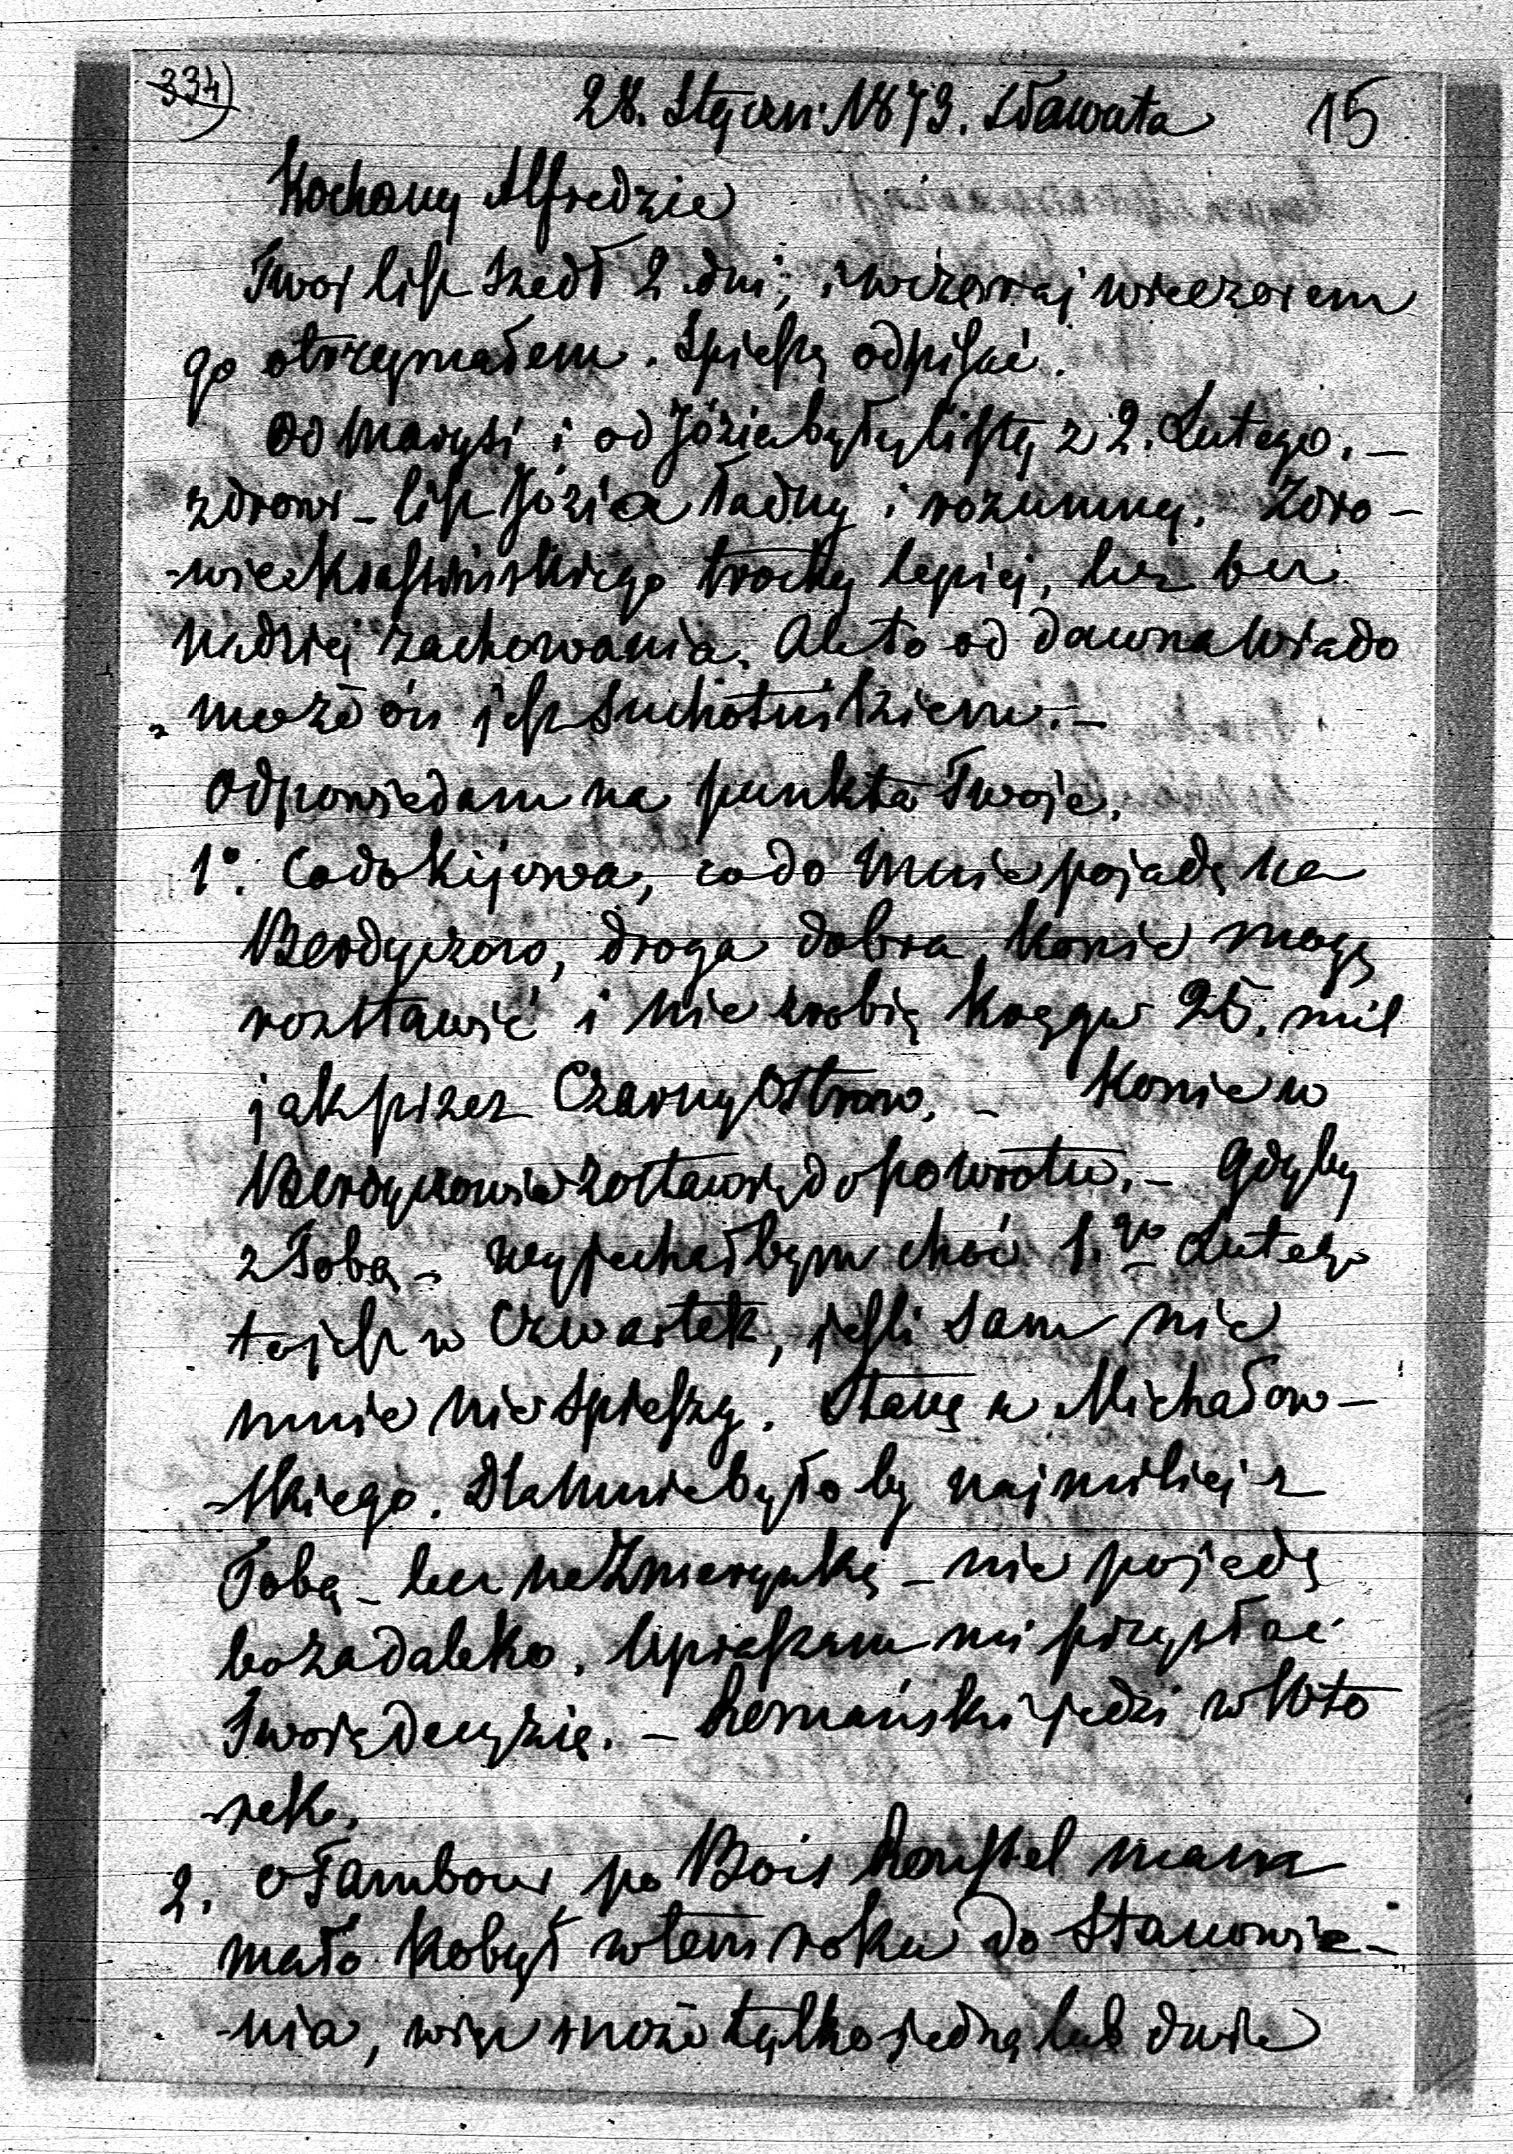 334)
28. Stycz: 1873. Sławuta 15
Kochany Alfredzie
Twoj list szedł 2 dni, i wczoraj wieczorem
go otrzymałem. Spieszę odpisać.
Od Marysi i od Józia były listy z 2. Lutego. –
zdrowi – list Józia ładny i rozumny. Zdro –
-wie trochę lepiej, lecz bez
nadziei zachowania. Ale to od dawna wiado
-mo że ón jest Suchotnikiem. –
Odpowiadam na punkta Twoje.
1°. Co do Kijowa, co do mnie pojadę na
Berdyczow, droga dobra, konie mogę
rozstawić i nie zrobię kręgu 25. mil
jak przez Czarny Ostrow. – Konie w
Berdyczowie zostawię do powrotu. – Gdyby
z Tobą – wyjechałbym choć 1.go Lutego
to jest w Czwartek, jeśli sam nic
mnie nie spieszy. Stanę u Michałow –
-skiego. Dla mnie było by najmiliej z
Tobą – lecz na Zmerynkę – nie pojadę
bo za daleko. Upraszam mi przysłać
Twoję decyzię. – jedzi w Wto
-rek.
2. O Tambour po Bois Roussel mam
mało kobył w tem roku do Stanowie –
-nia, więc może tylko jedną lub dwie